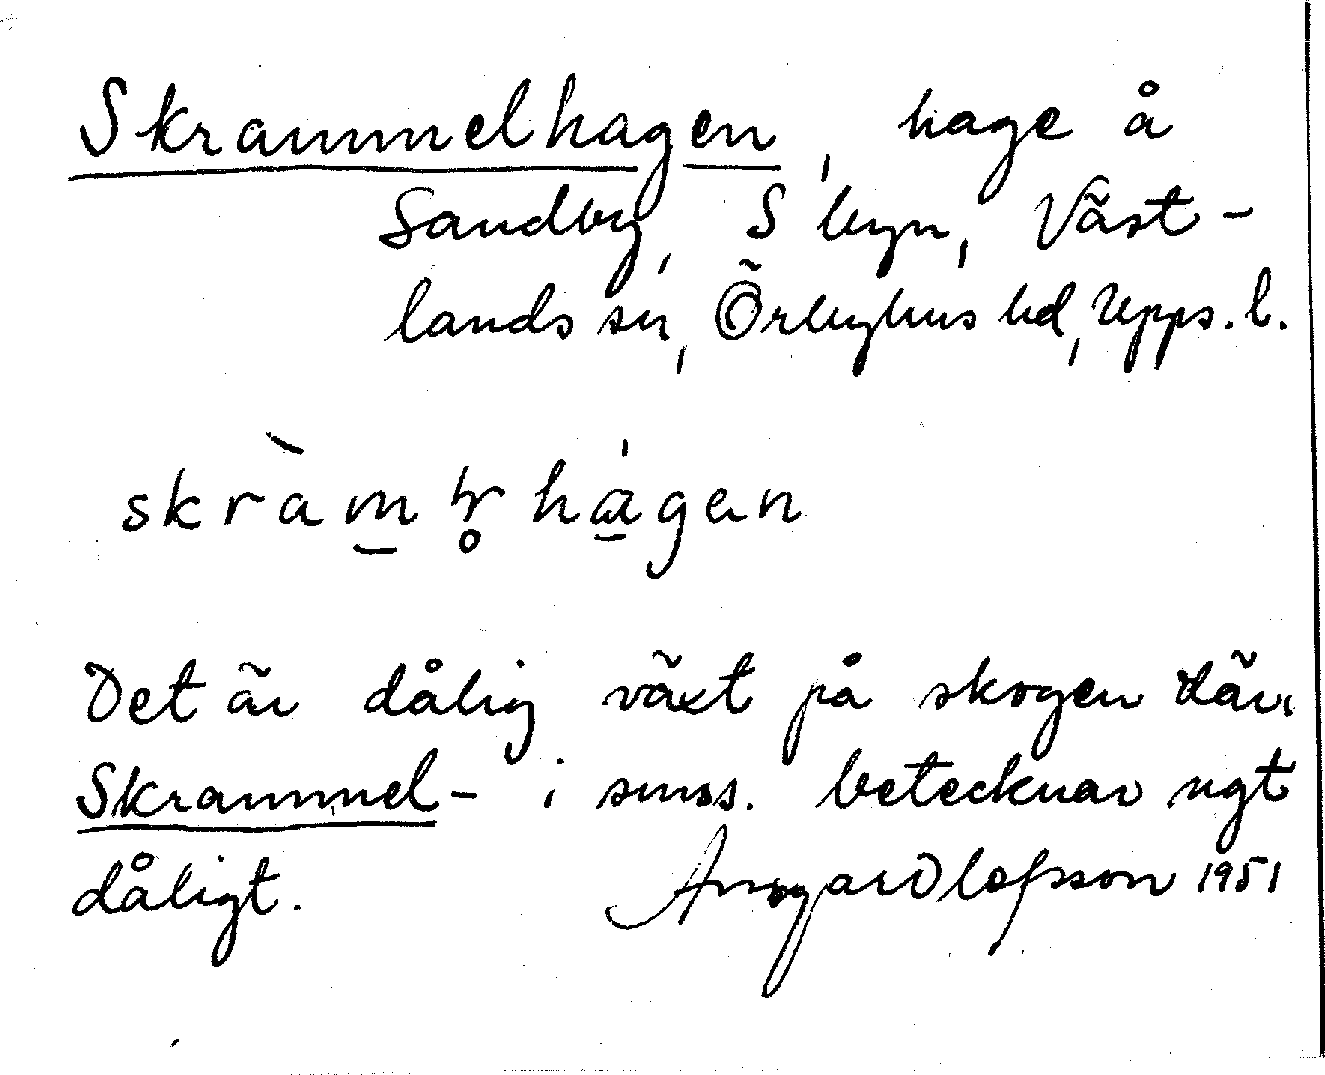 Skrammelhagen, hage å
Sandby, S byn, Väst-
lands sn, Örbyhus hd, Upps. l.
Det är dålig växt på skogen där.
Skrammel- i sms. betecknar ngt
dåligt. Ansgar Olofsson 1951